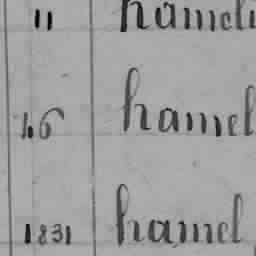 11 hameli
16 hamel
1831 hamel